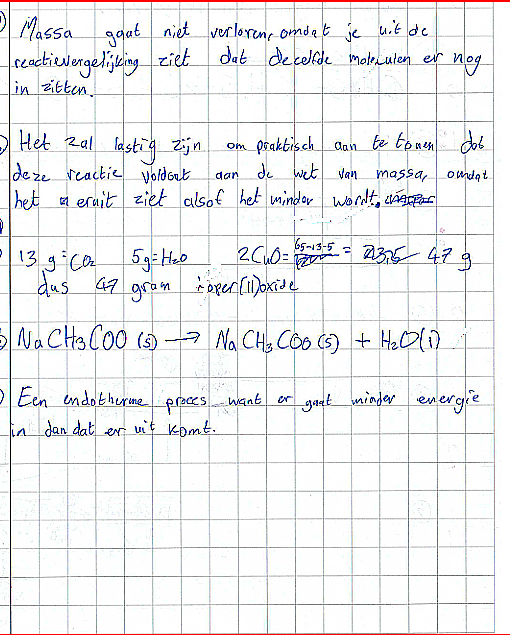 Massa gaat niet verloren, omdat je uit de
reactievergelijking ziet dat dezelfde moleculen er nog
in zitten.
Het zal lastig zijn om praktisch aan te tonen dat
deze reactie voldoet aan de wet van massa, omdat
het eruit ziet alsof het minder wordt.
13 g = CO2 5g = H2O 2CuO = 65-13-5 = 47 g
dus 47 gram koper(II)oxide
NaCH3COO (s) → NaCH3COO (s) + H2O(l)
Een endotherme proces want er gaat minder energie
in dan dat er uit komt.